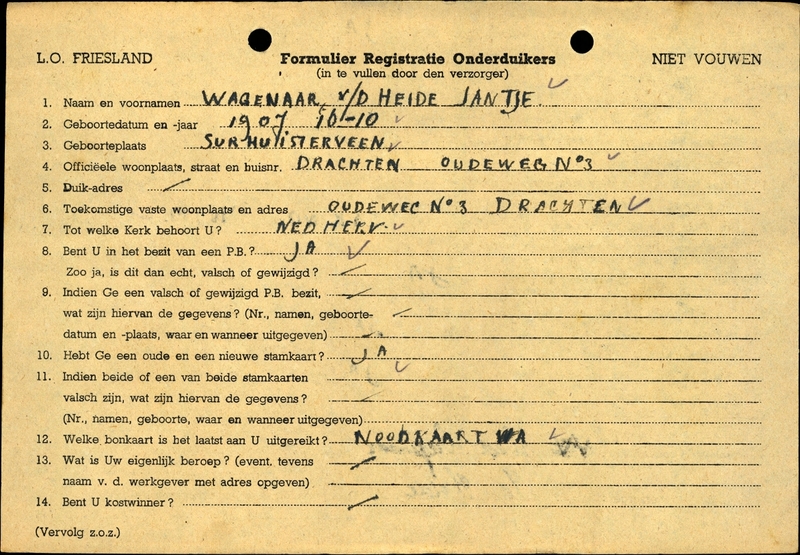 L.O. FRIESLAND Formulier Registratie Onderduikers NIET VOUWEN
(in te vullen door den verzorger)
1. Naam en voornamen WAGENAAR v/D HEIDE JANTJE
2. Geboortedatum en -jaar 1907 10-10
3. Geboorteplaats SURHUISTERVEEN
4. Officiëele woonplaats, straat en huisnr. DRACHTEN OUDEWEG No 3
5. Duik-adres
6. Toekomstige vaste woonplaats en adres OUDEWEG No 3 DRACHTEN
7. Tot welke Kerk behoort U? NED HERV.
8. Bent U in het bezit van een P.B.? JA
Zoo ja, is dit dan echt, valsch of gewijzigd?
9. Indien Ge een valsch of gewijzigd P.B. bezit,
wat zijn hiervan de gegevens? (Nr., namen, geboorte-
datum en -plaats, waar en wanneer uitgegeven)
10. Hebt Ge een oude en een nieuwe stamkaart? JA
11. Indien beide of een van beide stamkaarten
valsch zijn, wat zijn hiervan de gegevens?
(Nr., namen, geboorte, waar en wanneer uitgegeven)
12. Welke bonkaart is het laatst aan U uitgereikt? NOODKAART WA
13. Wat is Uw eigenlijk beroep? (event. tevens
naam v. d. werkgever met adres opgeven)
14. Bent U kostwinner?
(Vervolg z.o.z.)